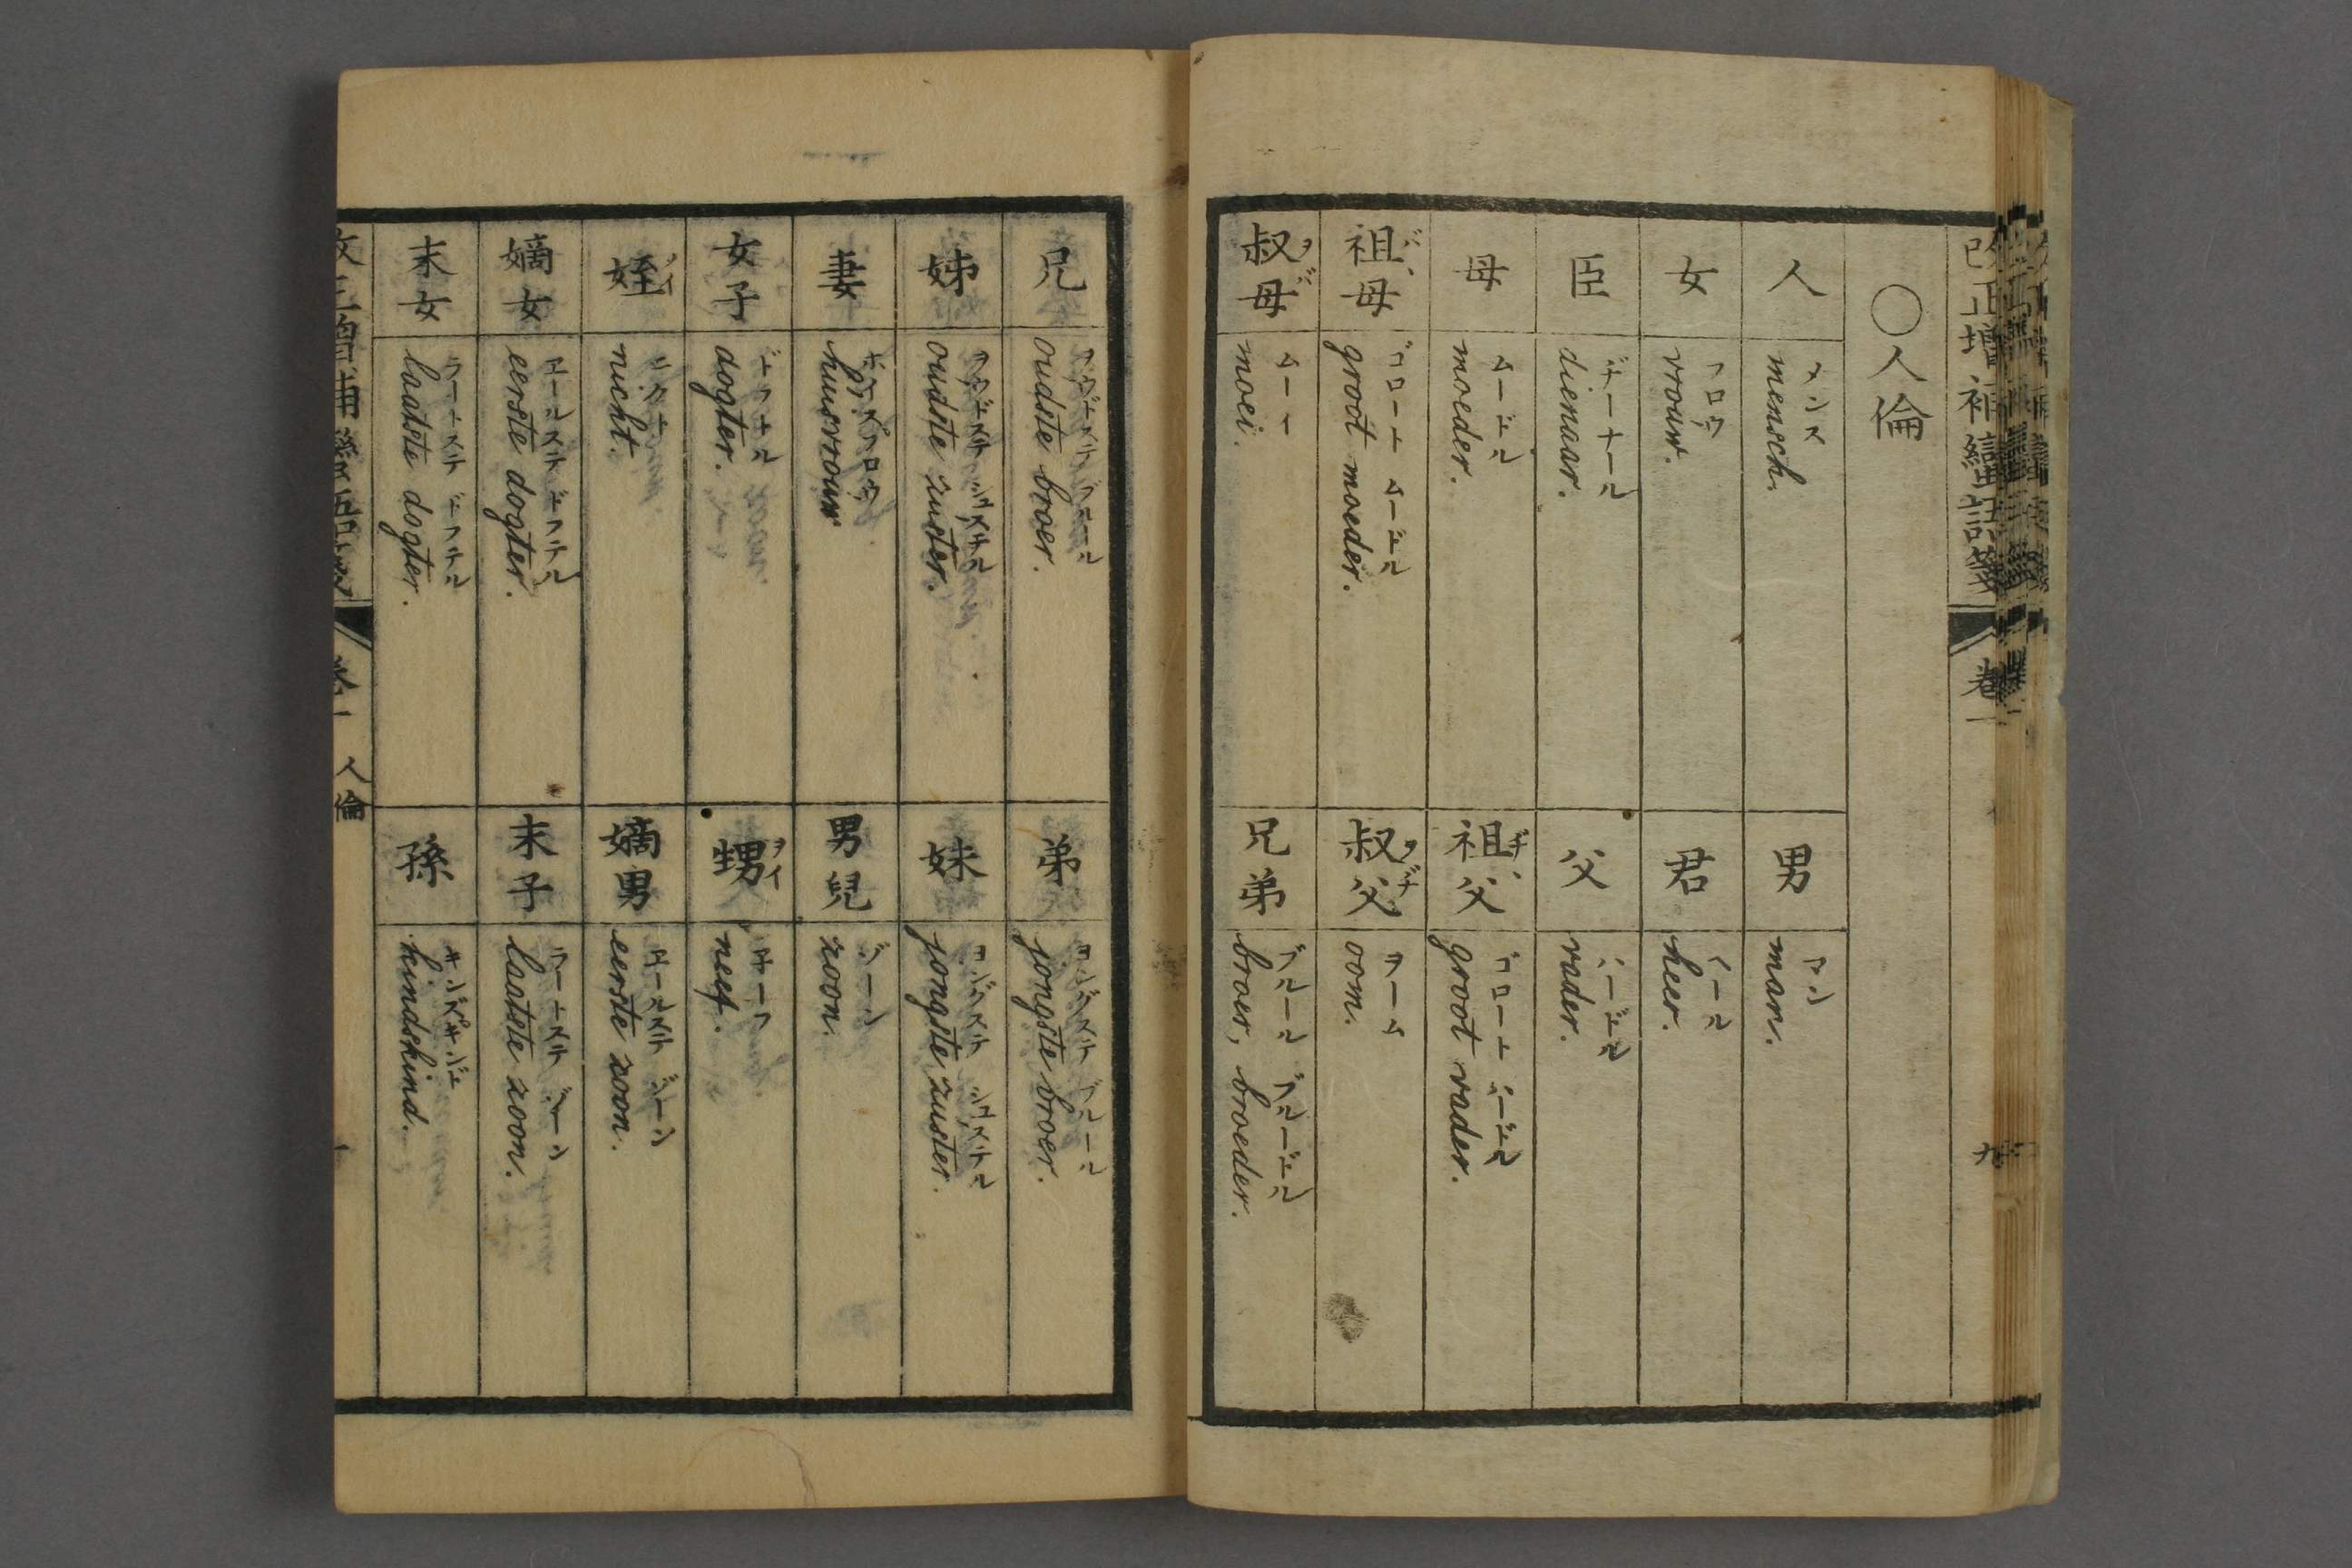 改正増補蠻語箋
卷一
九
〇人倫
人
メンス
mensch.
男
マン
man.
女
フロウ
vrouw.
君
ヘール
heer.
臣
ヂーナール
dienaar.
父
ハーデル
vader.
母
ムーデル
moeder.
祖父
ヂヽ
ゴロート ハーデル
groot vader.
祖母
バヽ
ゴロート ムーデル
groot moeder.
叔父
ヲヂ
ヲーム
oom.
叔母
ヲバ
ムーイ
moei.
兄弟
ブルール ブルーデル
broer, broeder.
兄
oudste broer.
弟
ヨングステ ブルール
jongste broer.
姊
ヲウデステ シュステル
oudste zuster.
妹
ヨングステ シュステル
jongste zuster.
妻
ホウスフロウ
huusvrouw
男兒
ゾーン
zoon.
女子
dogter.
甥
ヲイ
子ーフ
neef.
姪
メイ
ニクト
nicht.
嫡男
ヱールステ ゾーン
eerste zoon.
嫡女
ヱールステ ドフテル
eerste dogter.
末子
ラートステ ゾーン
laatste zoon.
末女
ラートステ ドフテル
laatste dogter.
孫
キンヅキンド
kindskind.
改正増補蠻語箋
卷一 人倫